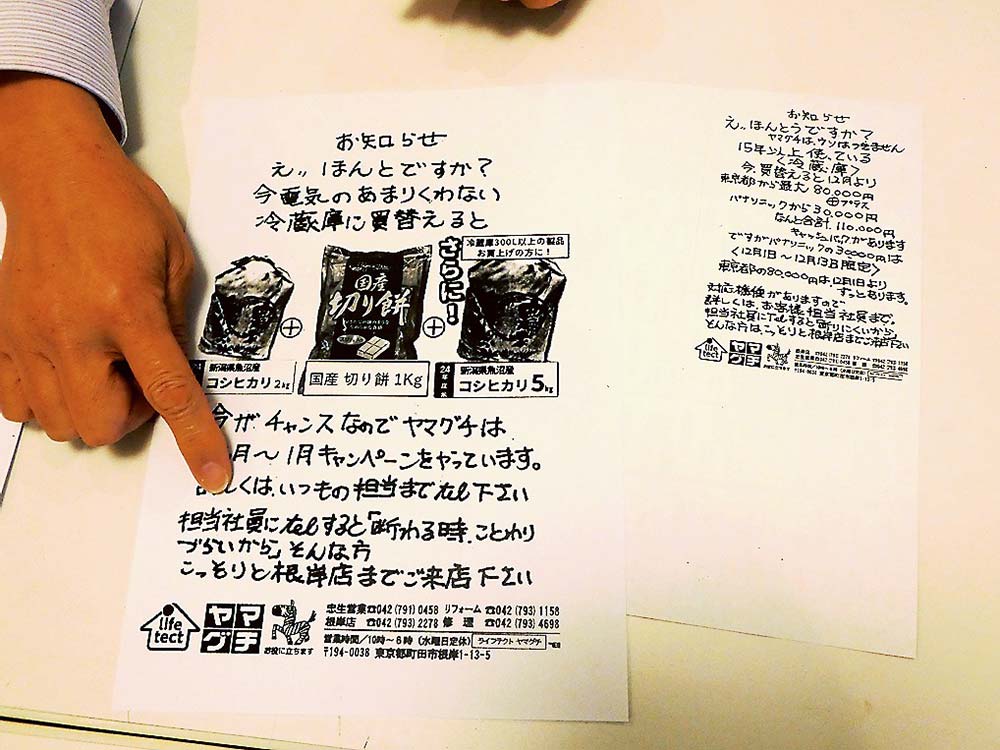 お知らせ
え〃ほんとですか?
今電気のあまりくわない
冷蔵庫に買替えると
冷蔵庫300L以上の製品
お買上げの方に!
さらに!
国産
切り餅
新潟県魚沼産
コシヒカリ2kg
国産 切り餅 1Kg
24年度米
新潟県魚沼産
コシヒカリ5kg
今がチャンスなのでヤマグチは
月〜1月キャンペーンをやっています。
しくは、いつもの担当までtel下さい
担当社員にtelすると「断わる時、ことわり
づらいから」そんな方
こっそりと根岸店までご来店下さい
life tect
ヤマグチ
お役に立ちます
忠生営業☎042(791)0458 リフォーム ☎042(793)1158
根岸店 ☎042(793)2278 修理 ☎042(793)4698
営業時間/10時〜6時(水曜日定休) ライフテクト ヤマグチ
〒194-0038 東京都町田市根岸1-13-5
お知らせ
え〃ほんとうですか?
ヤマグチは、ウソはつきません
15年以上使っている
<冷蔵庫>
今、買替えると12月より
東京都から最大80,000円
⊕プラス
パナソニックから30,000円
なんと合計、110,000円
キャッシュバックがあります
ですがパナソニックの30000円は
<12月1日〜12月13日限定>
東京都の80,000円は12月1日より
ずっとあります。
対応機種がありますので
詳しくは、お客様担当社員まで。
担当社員にtelすると断りにくいから、
そんな方はこっそりと根岸店までご来店下さい
life tect
ヤマグチ
〒194-0038 東京都町田市根岸1-13-5